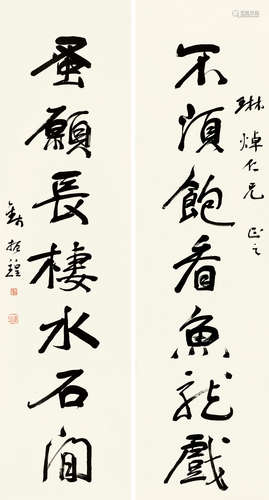 不須飽看魚龍戲
琳焯仁兄 正之
蚤願長棲水石間
錢振鍠